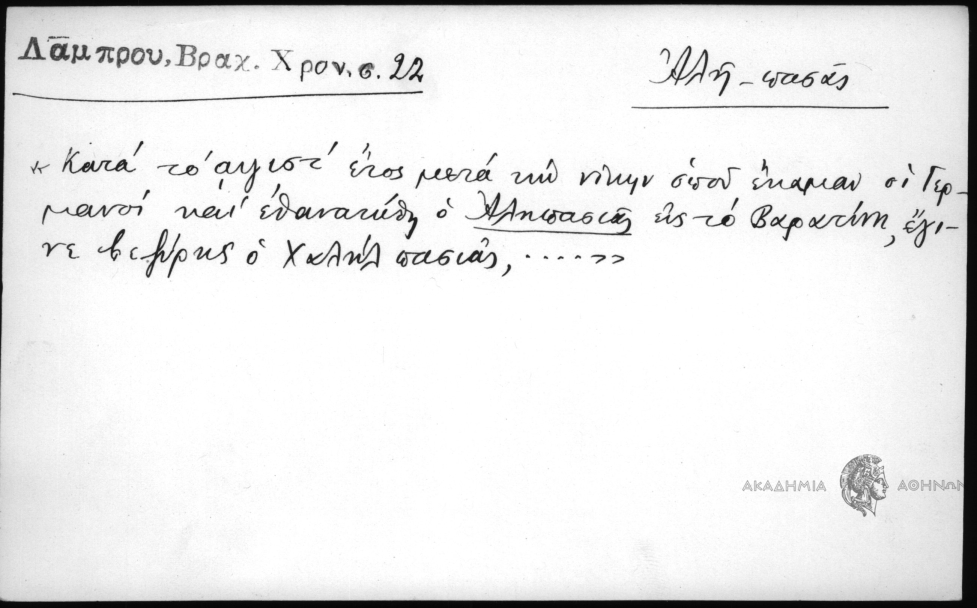 Λάμπρου, Βραχ. Χρον. σ. 22
Ἀλῆ-πασᾶς
« Κατά τό αψιστ΄ ἔτος μετά τήν νίκην ὁποῦ ἔκαμαν οἱ Γερ-
μανοί καί ἐθανατώθη ὁ Ἀλήπασιᾶς εἰς τό Βαρατίνι, ἔγι-
νε βεζύρης ὁ Χαλήλ πασιᾶς, ..... »
ΑΚΑΔΗΜΙΑ ΑΘΗΝΩΝ